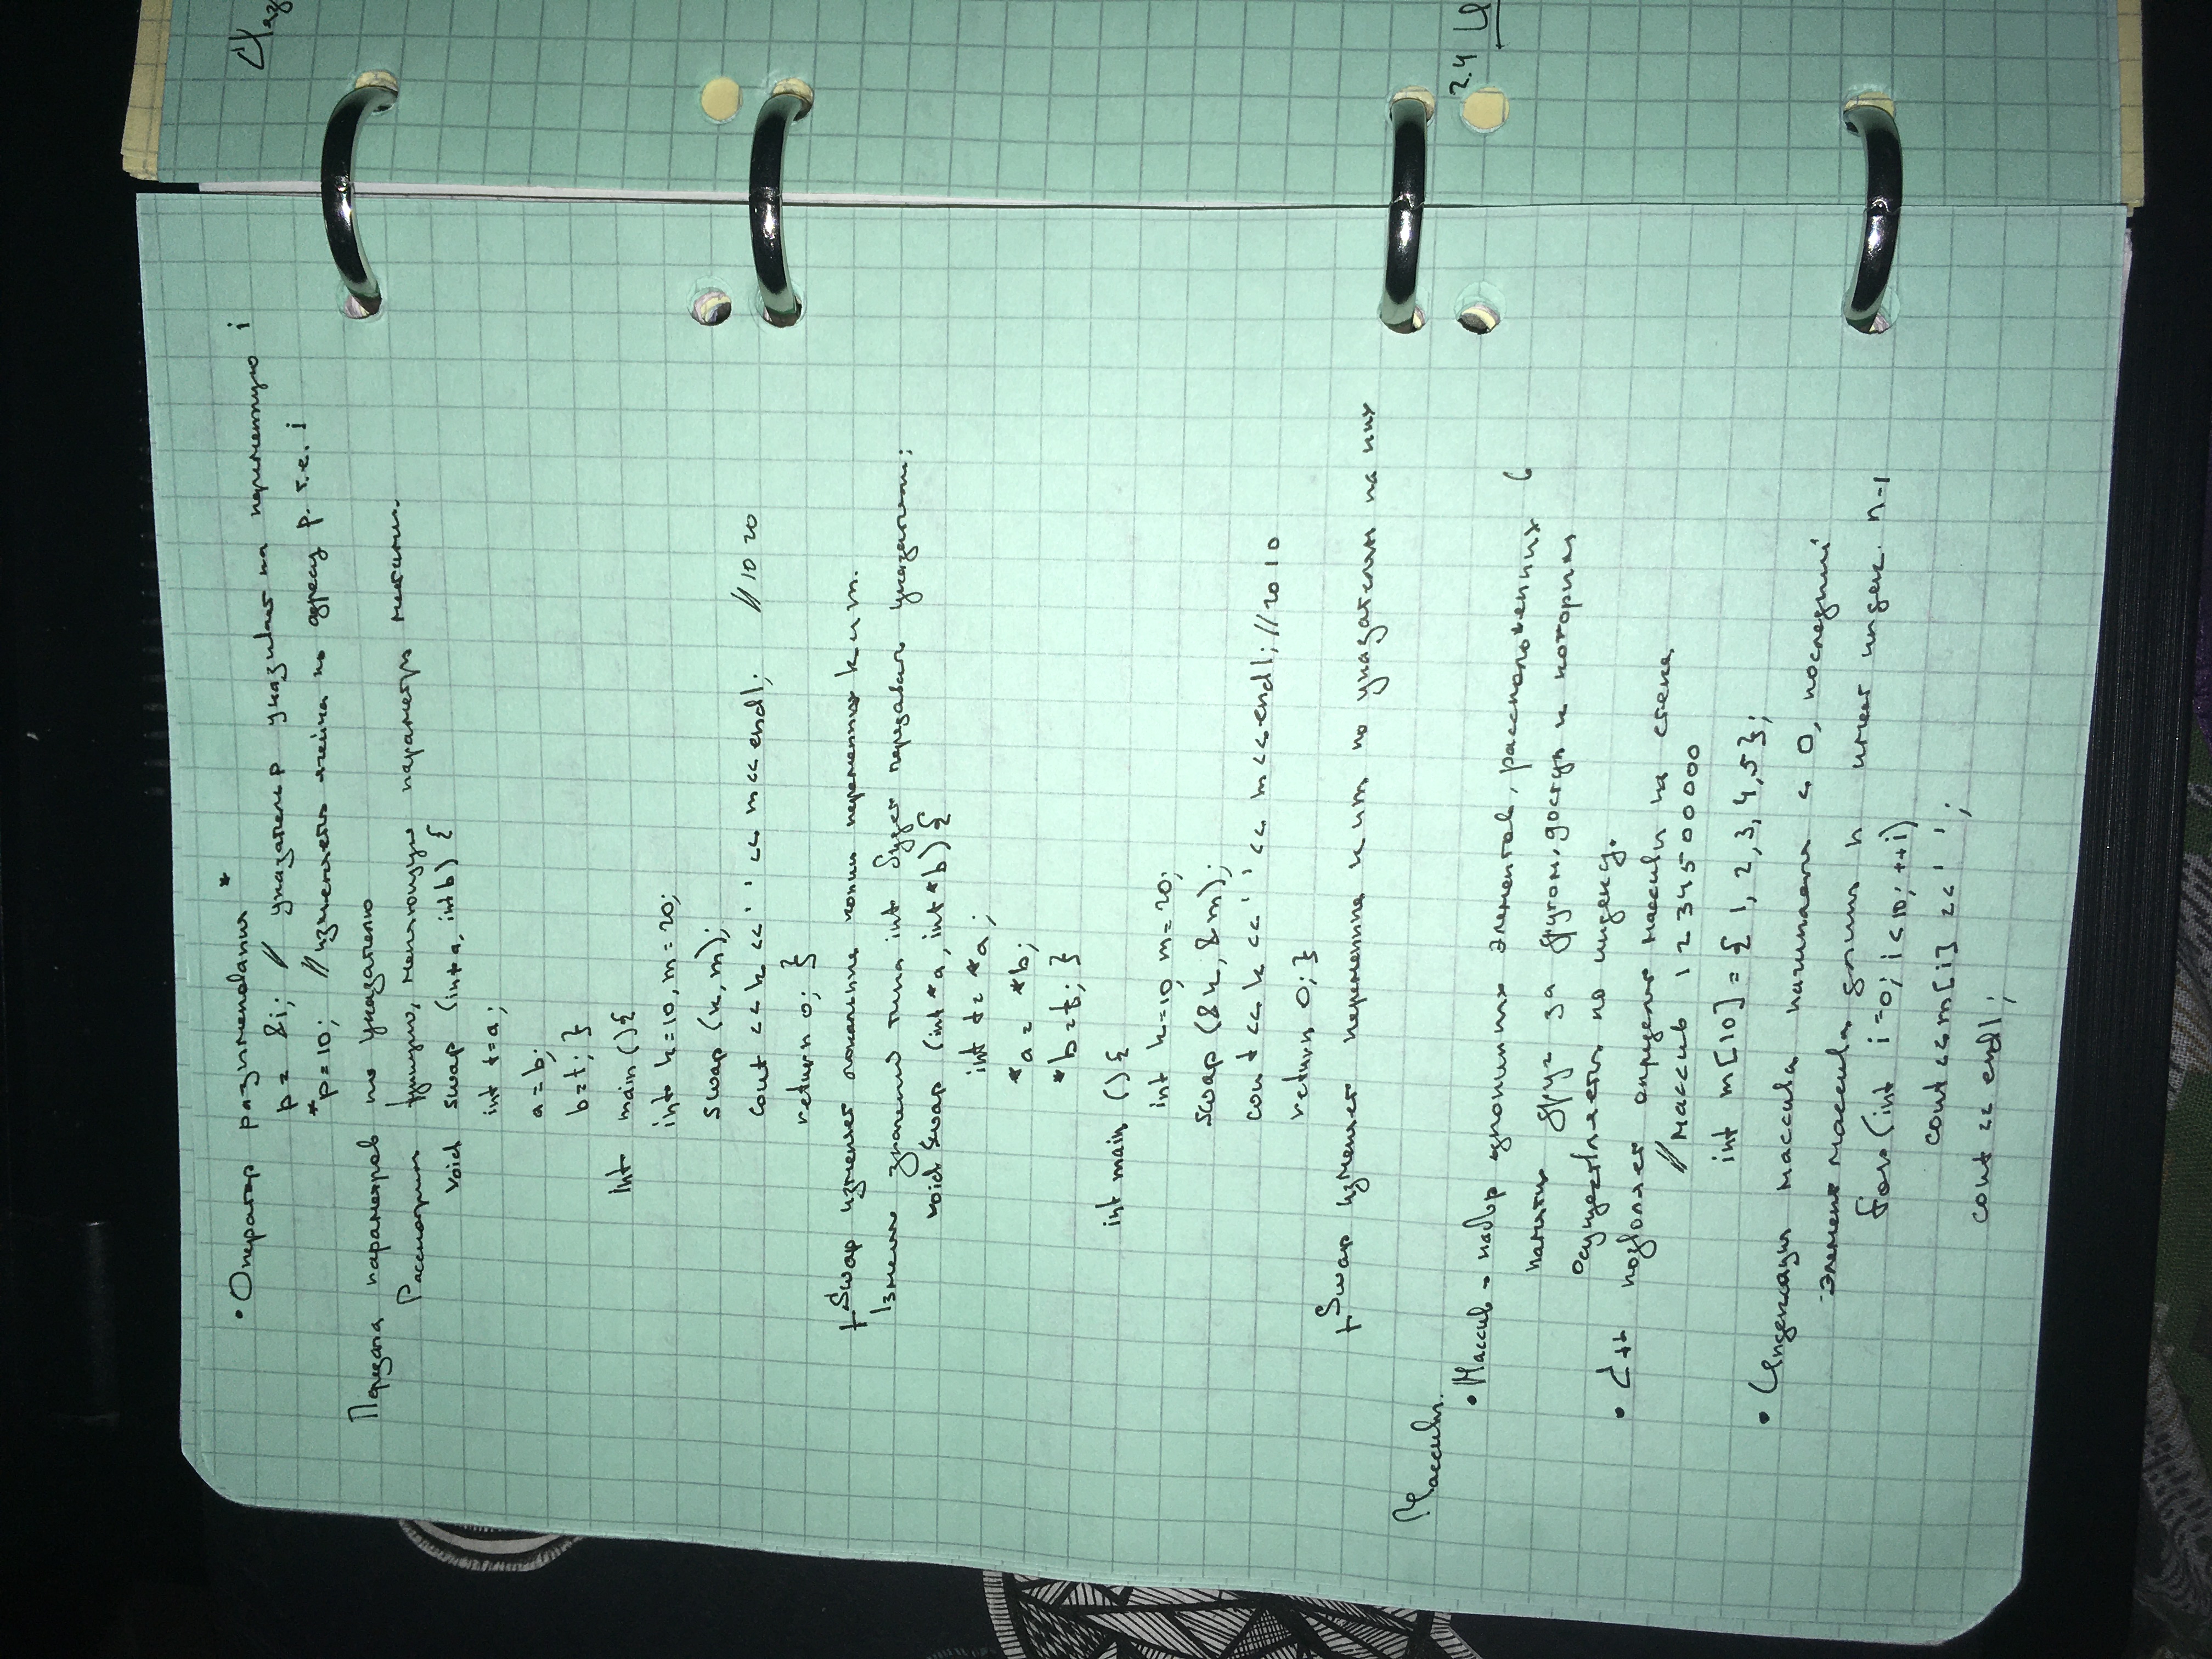 • Оператор разыменования *
p = &i; // указатель p указывает на переменную i
*p = 10; // изменяется ячейка по адресу p. т.е. i
Передача параметров по указателю
Рассмотрим функцию, меняющую параметры местами.
void swap (int a, int b) {
int t=a;
a = b;
b=t; }
int main () {
int k=10, m=20;
swap (k, m);
cout << k << ' ' << m << endl; // 10 20
return 0; }
Swap изменяет локальные копии переменных k и m.
значений типа int будет передавать указатели:
void swap (int *a, int *b) {
int t= *a;
*a = *b;
*b=t; }
int main () {
int k=10, m=20;
swap (&k, &m);
cout << k << ' ' << m << endl; // 20 10
return 0; }
Swap изменяет переменные k и m по указателям на них
Массивы.
• Массив - набор однотипных элементов, расположенных в
памяти друг за другом, доступ к которым
осуществляется по индексу.
• C++ позволяет определять массивы на стеке
// массив 1 2 3 4 5 0 0 0 0 0
int m[10] = { 1, 2, 3, 4, 5 };
• Индексация массива начинается с 0, последний
элемент массива длины n имеет индек. n-1
for (int i=0; i<10; ++i)
cout << m[i] << ' ';
cout << endl;
2.4